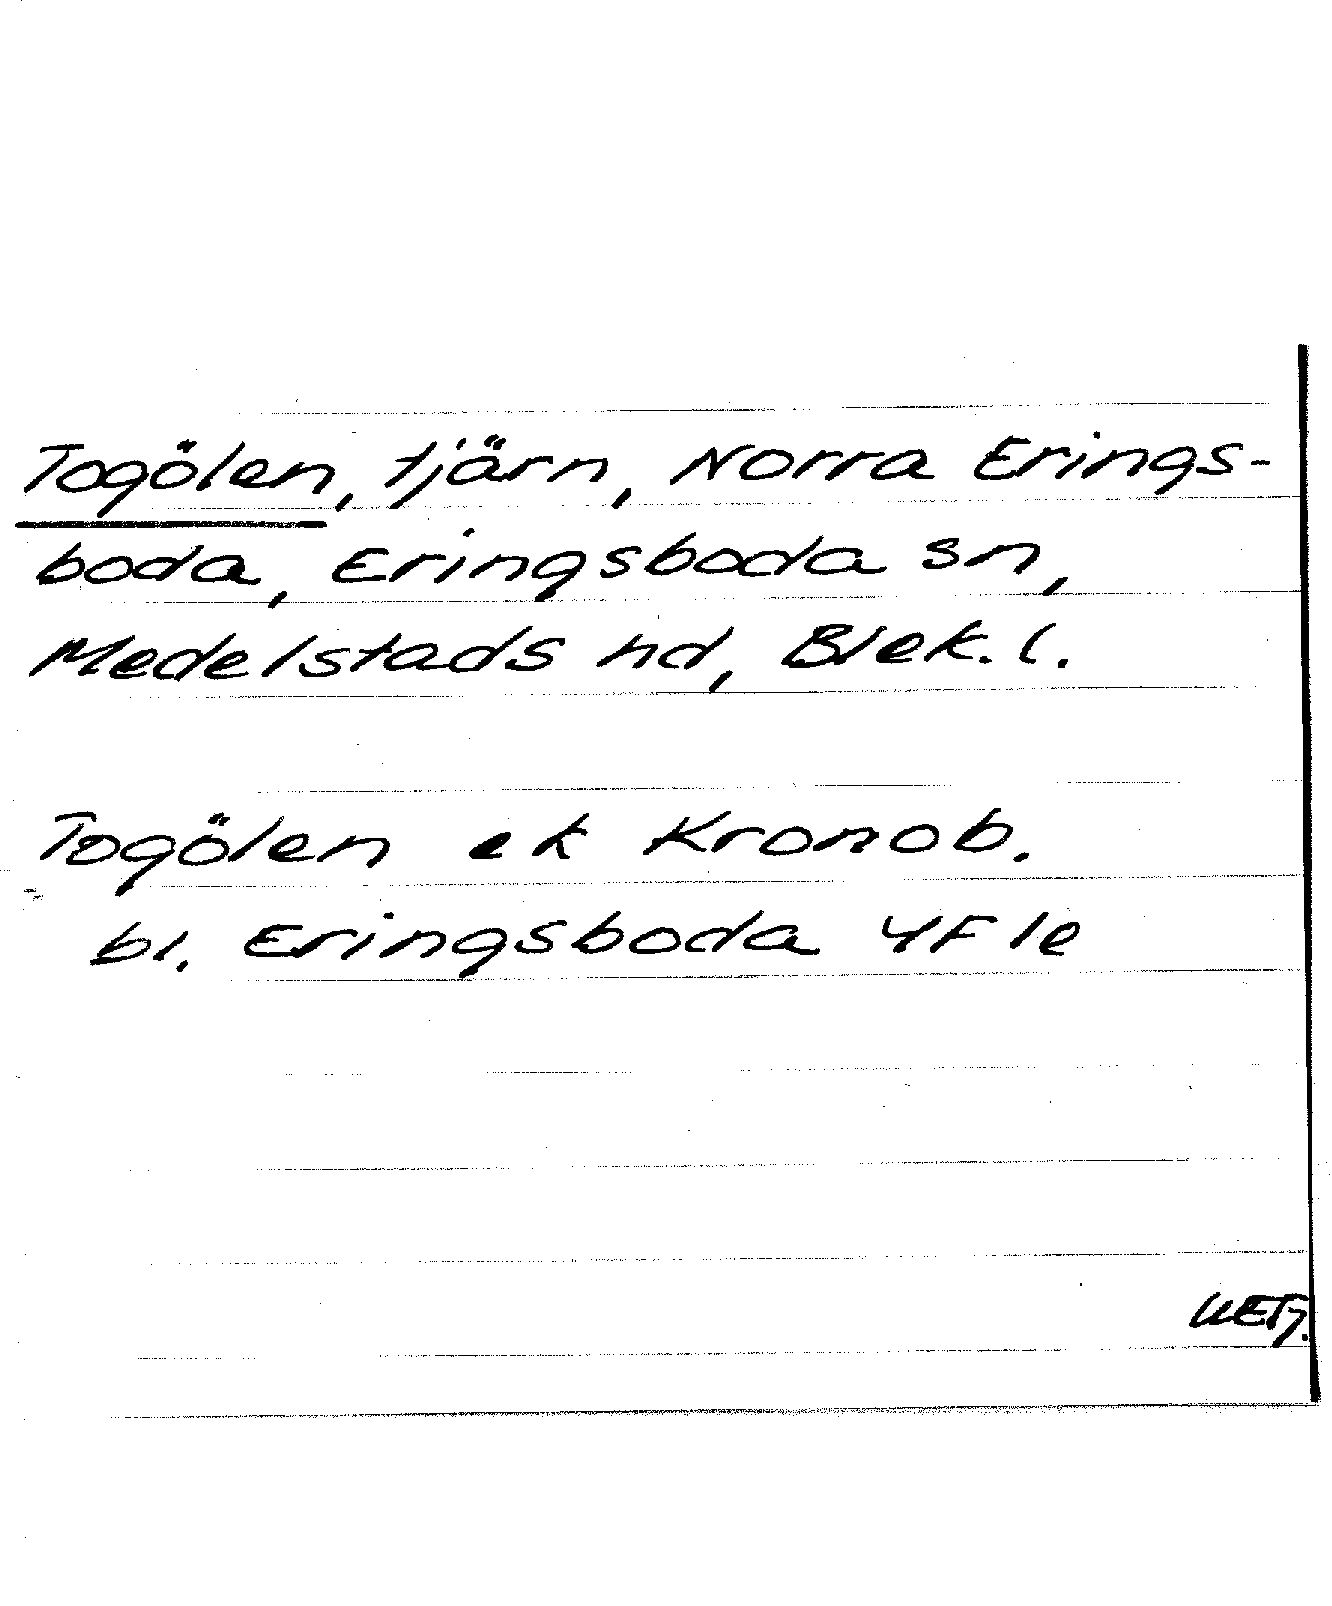 Togölen, tjärn, Norra Erings-
boda, Eringsboda sn,
Medelstads hd, Blek. l.
Togölen ek Kronob.
bl. Eringsboda 4F 1e